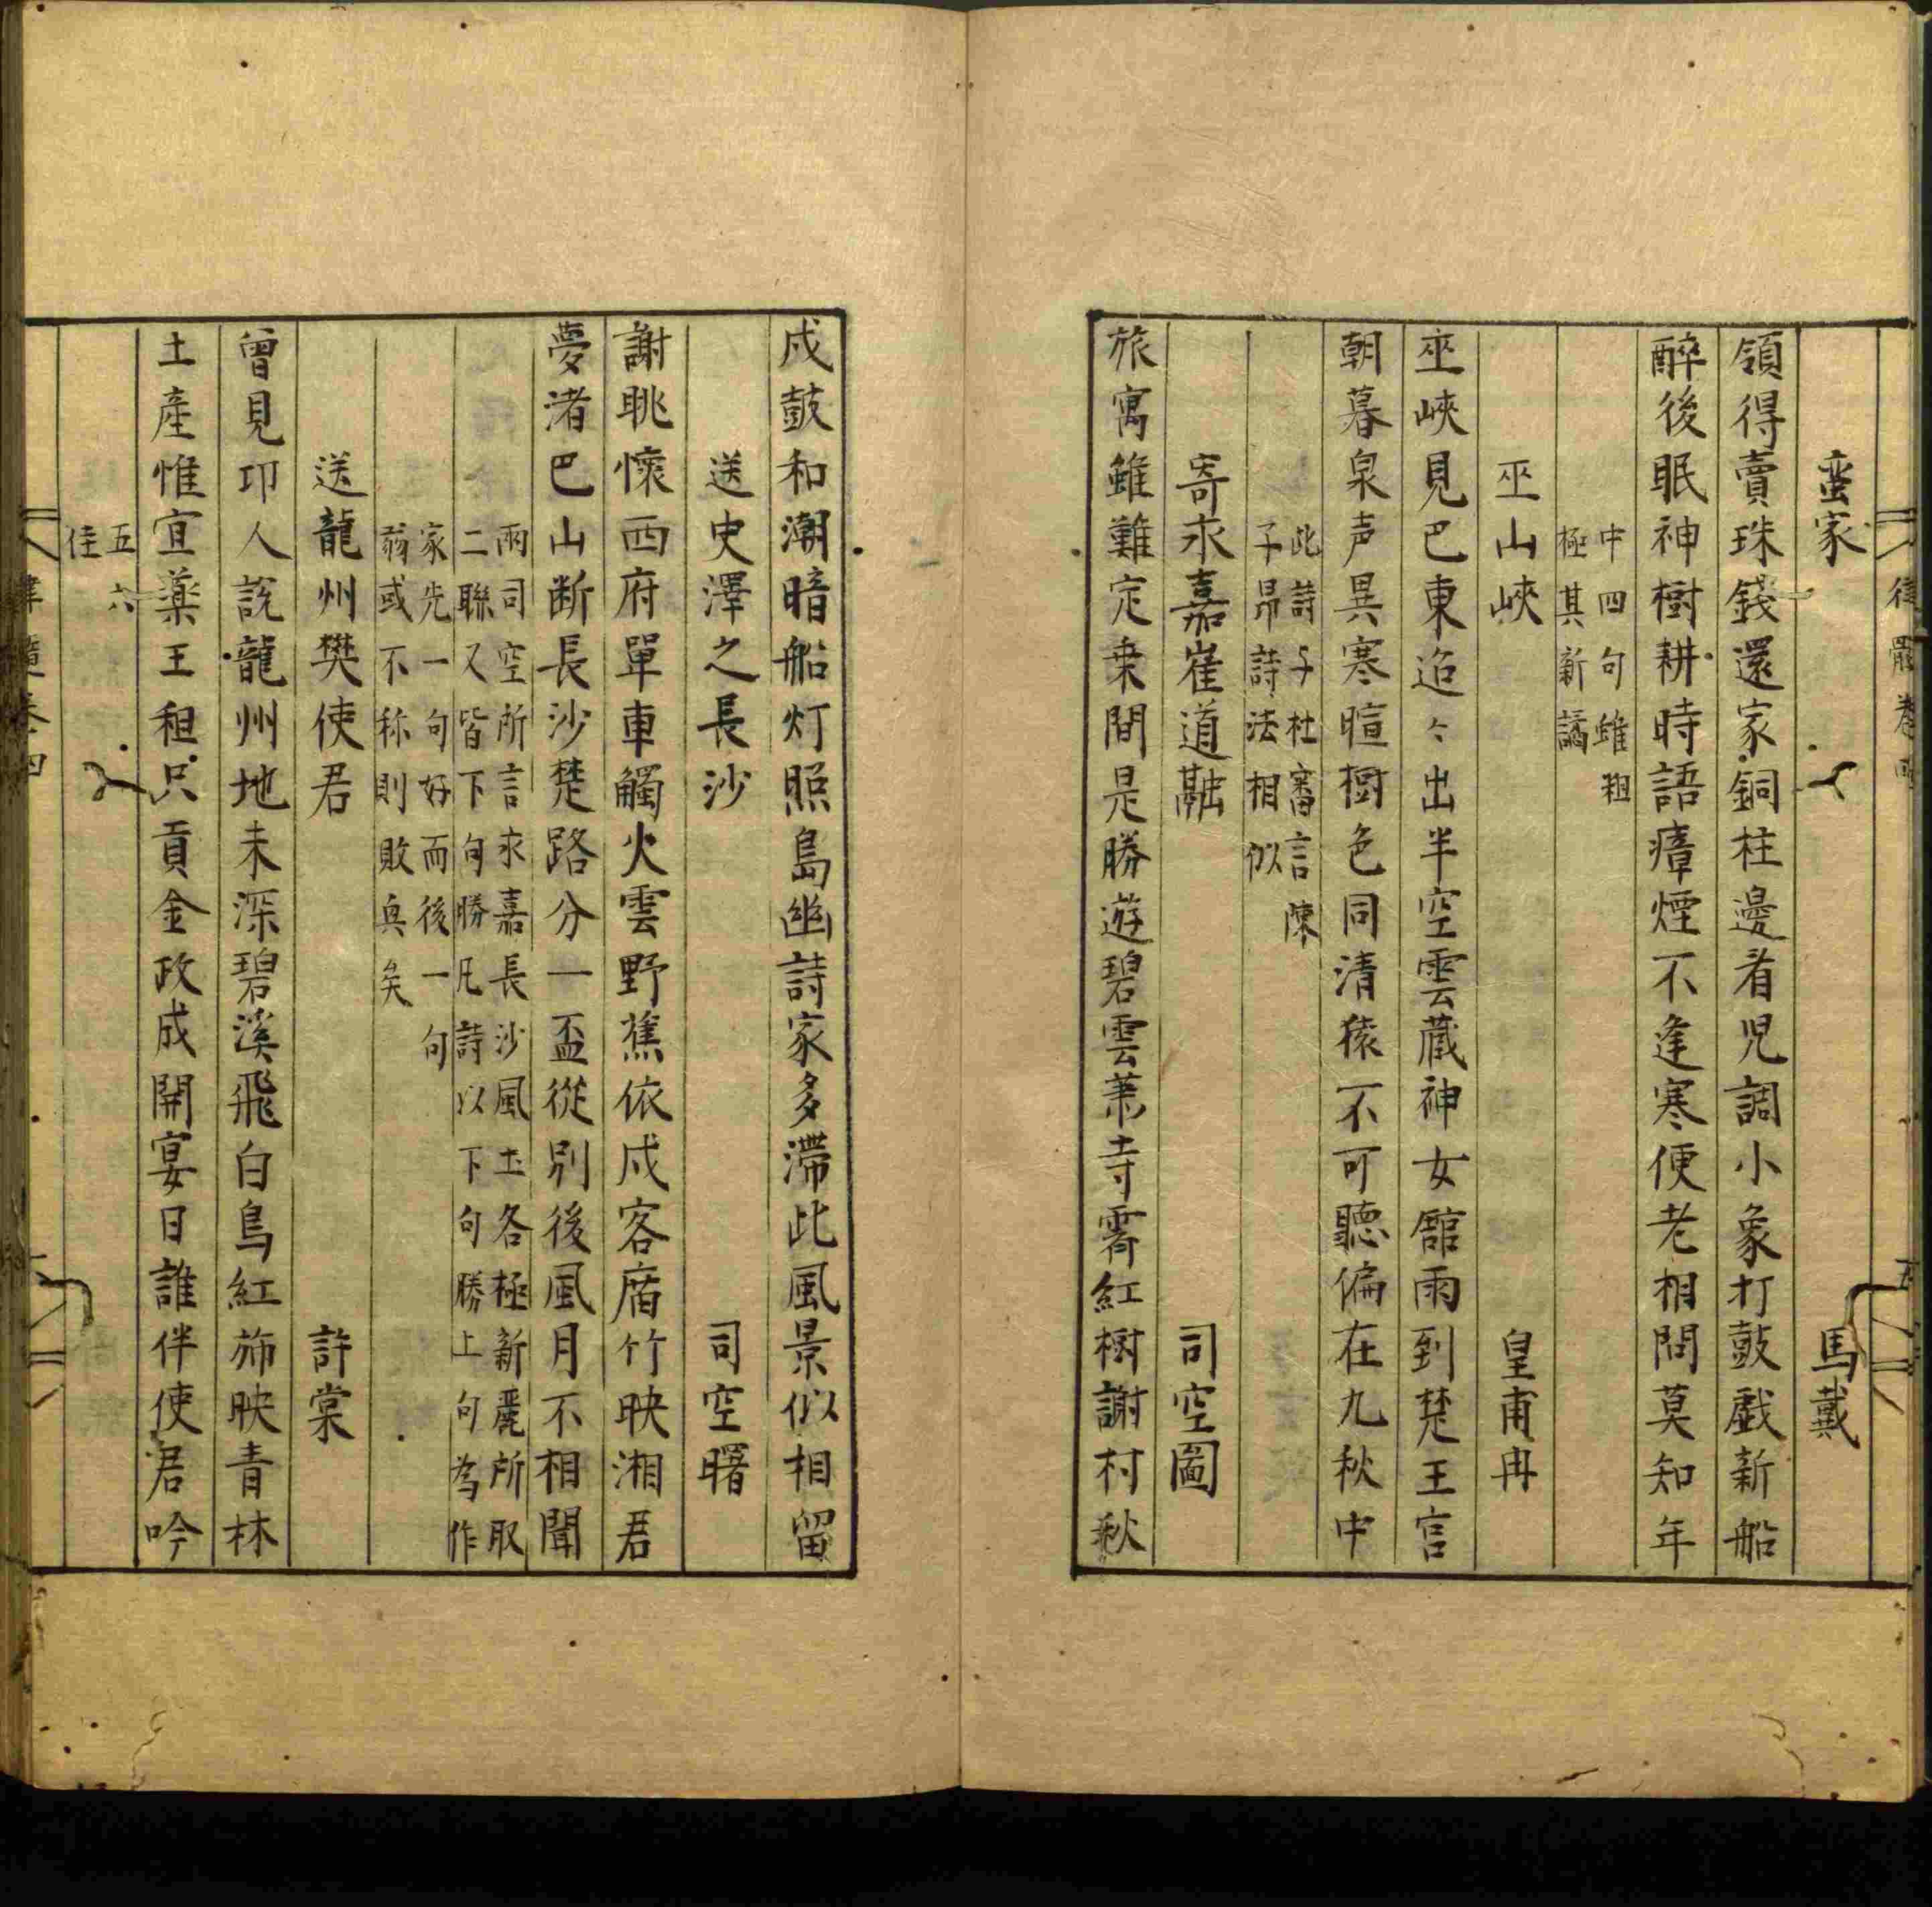 律髓卷四
五
蛮家　馬戴
領得賣珠錢還家銅柱邊看児調小象打鼓戲新船
醉後眠神樹耕時語瘴煙不逢寒便老相問莫知年
中四句雖粗
極其新譎
巫山峽　皇甫冉
巫峽見巴東迢〻出半空雲藏神女舘雨到楚王宫
朝暮泉声異寒暄樹色同清猿不可聽偏在九秋中
此詩予杜審言陳
子昂詩法相似
寄永嘉崔道融　司空圖
旅寓雖難定乗間是勝遊碧雲萧寺霽紅樹謝村秋
戍鼓和潮暗船灯照島幽詩家多滯此風景似相留
送史澤之長沙　司空曙
謝眺懷西府單車觸火雲野蕉依戍客庿竹映湘君
夢渚巴山断長沙楚路分一盃從别後風月不相聞
兩司空所言永嘉長沙風土各極新麗所取
二聯又皆下句勝凡詩以下句勝上句为作
家先一句好而後一句
弱或不称則敗興矣
送龍州樊使君　許棠
曾見卭人説龍州地未深碧溪飛白鳥紅斾映青林
土產惟宜薬王租只貢金政成開宴日誰伴使君吟
五六
佳
律髓卷四